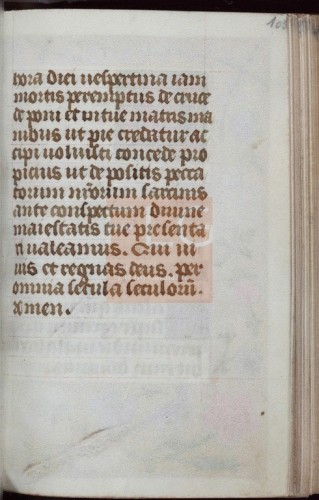 hora diei uespertina iam
mortis peremptus de cruce
de poni et in tue matris ma
nibus ut pie creditur ac
cipi uoluisti concede pro
picius ut de positis pecca
torum nr̄orum sarcinis
ante conspectum diuine
maiestatis tue presenta
ri ualeamus. Qui ui
uis et regnas deus. per
omnia secula seculorū.
Amen.